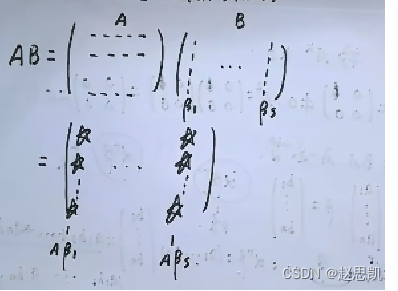 A B
AB = ( ) ( ... )
β₁ βs
= ( ☆ ☆
☆ ... ☆
☆ ☆ )
Aβ₁ Aβs
CSDN @赵思凯